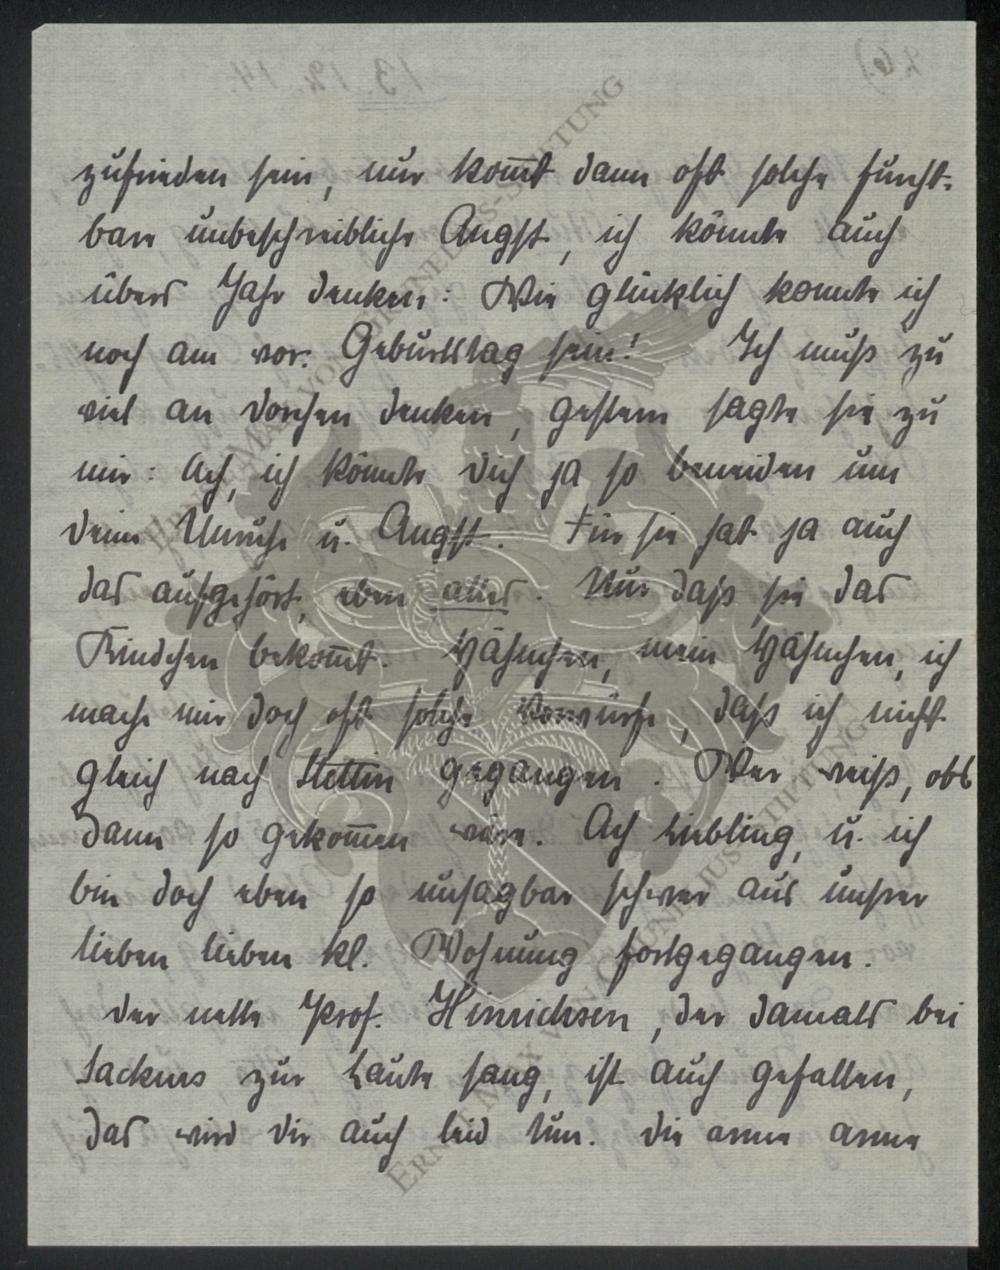 zufrieden sein, nur kom̅t dann oft solche furcht-
bare unbeschreibliche Angst, ich könnte auch
übers Jahr denken: Wie glücklich konnte ich
noch am vor. Geburtstag sein! Ich muß zu
viel an Dorchen denken, gestern sagte sie zu
mir: Ach, ich könnte dich ja so beneiden um
deine Unruhe u. Angst. Für sie hat ja auch
das aufgehört, eben alles. Nur daß sie das
Kindchen bekom̅t. Hähnchen, mein Hähnchen, ich
mache mir doch oft solche Vorwürfe, daß ich nicht
gleich nach Stettin gegangen. Wer weiß, obs
dann so gekom̅en wäre. Ach Liebling, u. ich
bin doch eben so unsagbar schwer aus unsrer
lieben lieben kl. Wohnung fortgegangen.
Der nette Prof. Hinrichsen, der damals bei
Sackurs zur Laute sang, ist auch gefallen,
das wird dir auch leid tun. Die arme arme
13.12.14.
26)
ERNST MAX VON GRUNELIUS-STIFTUNG
ERNST MAX VON GRUNELIUS-STIFTUNG